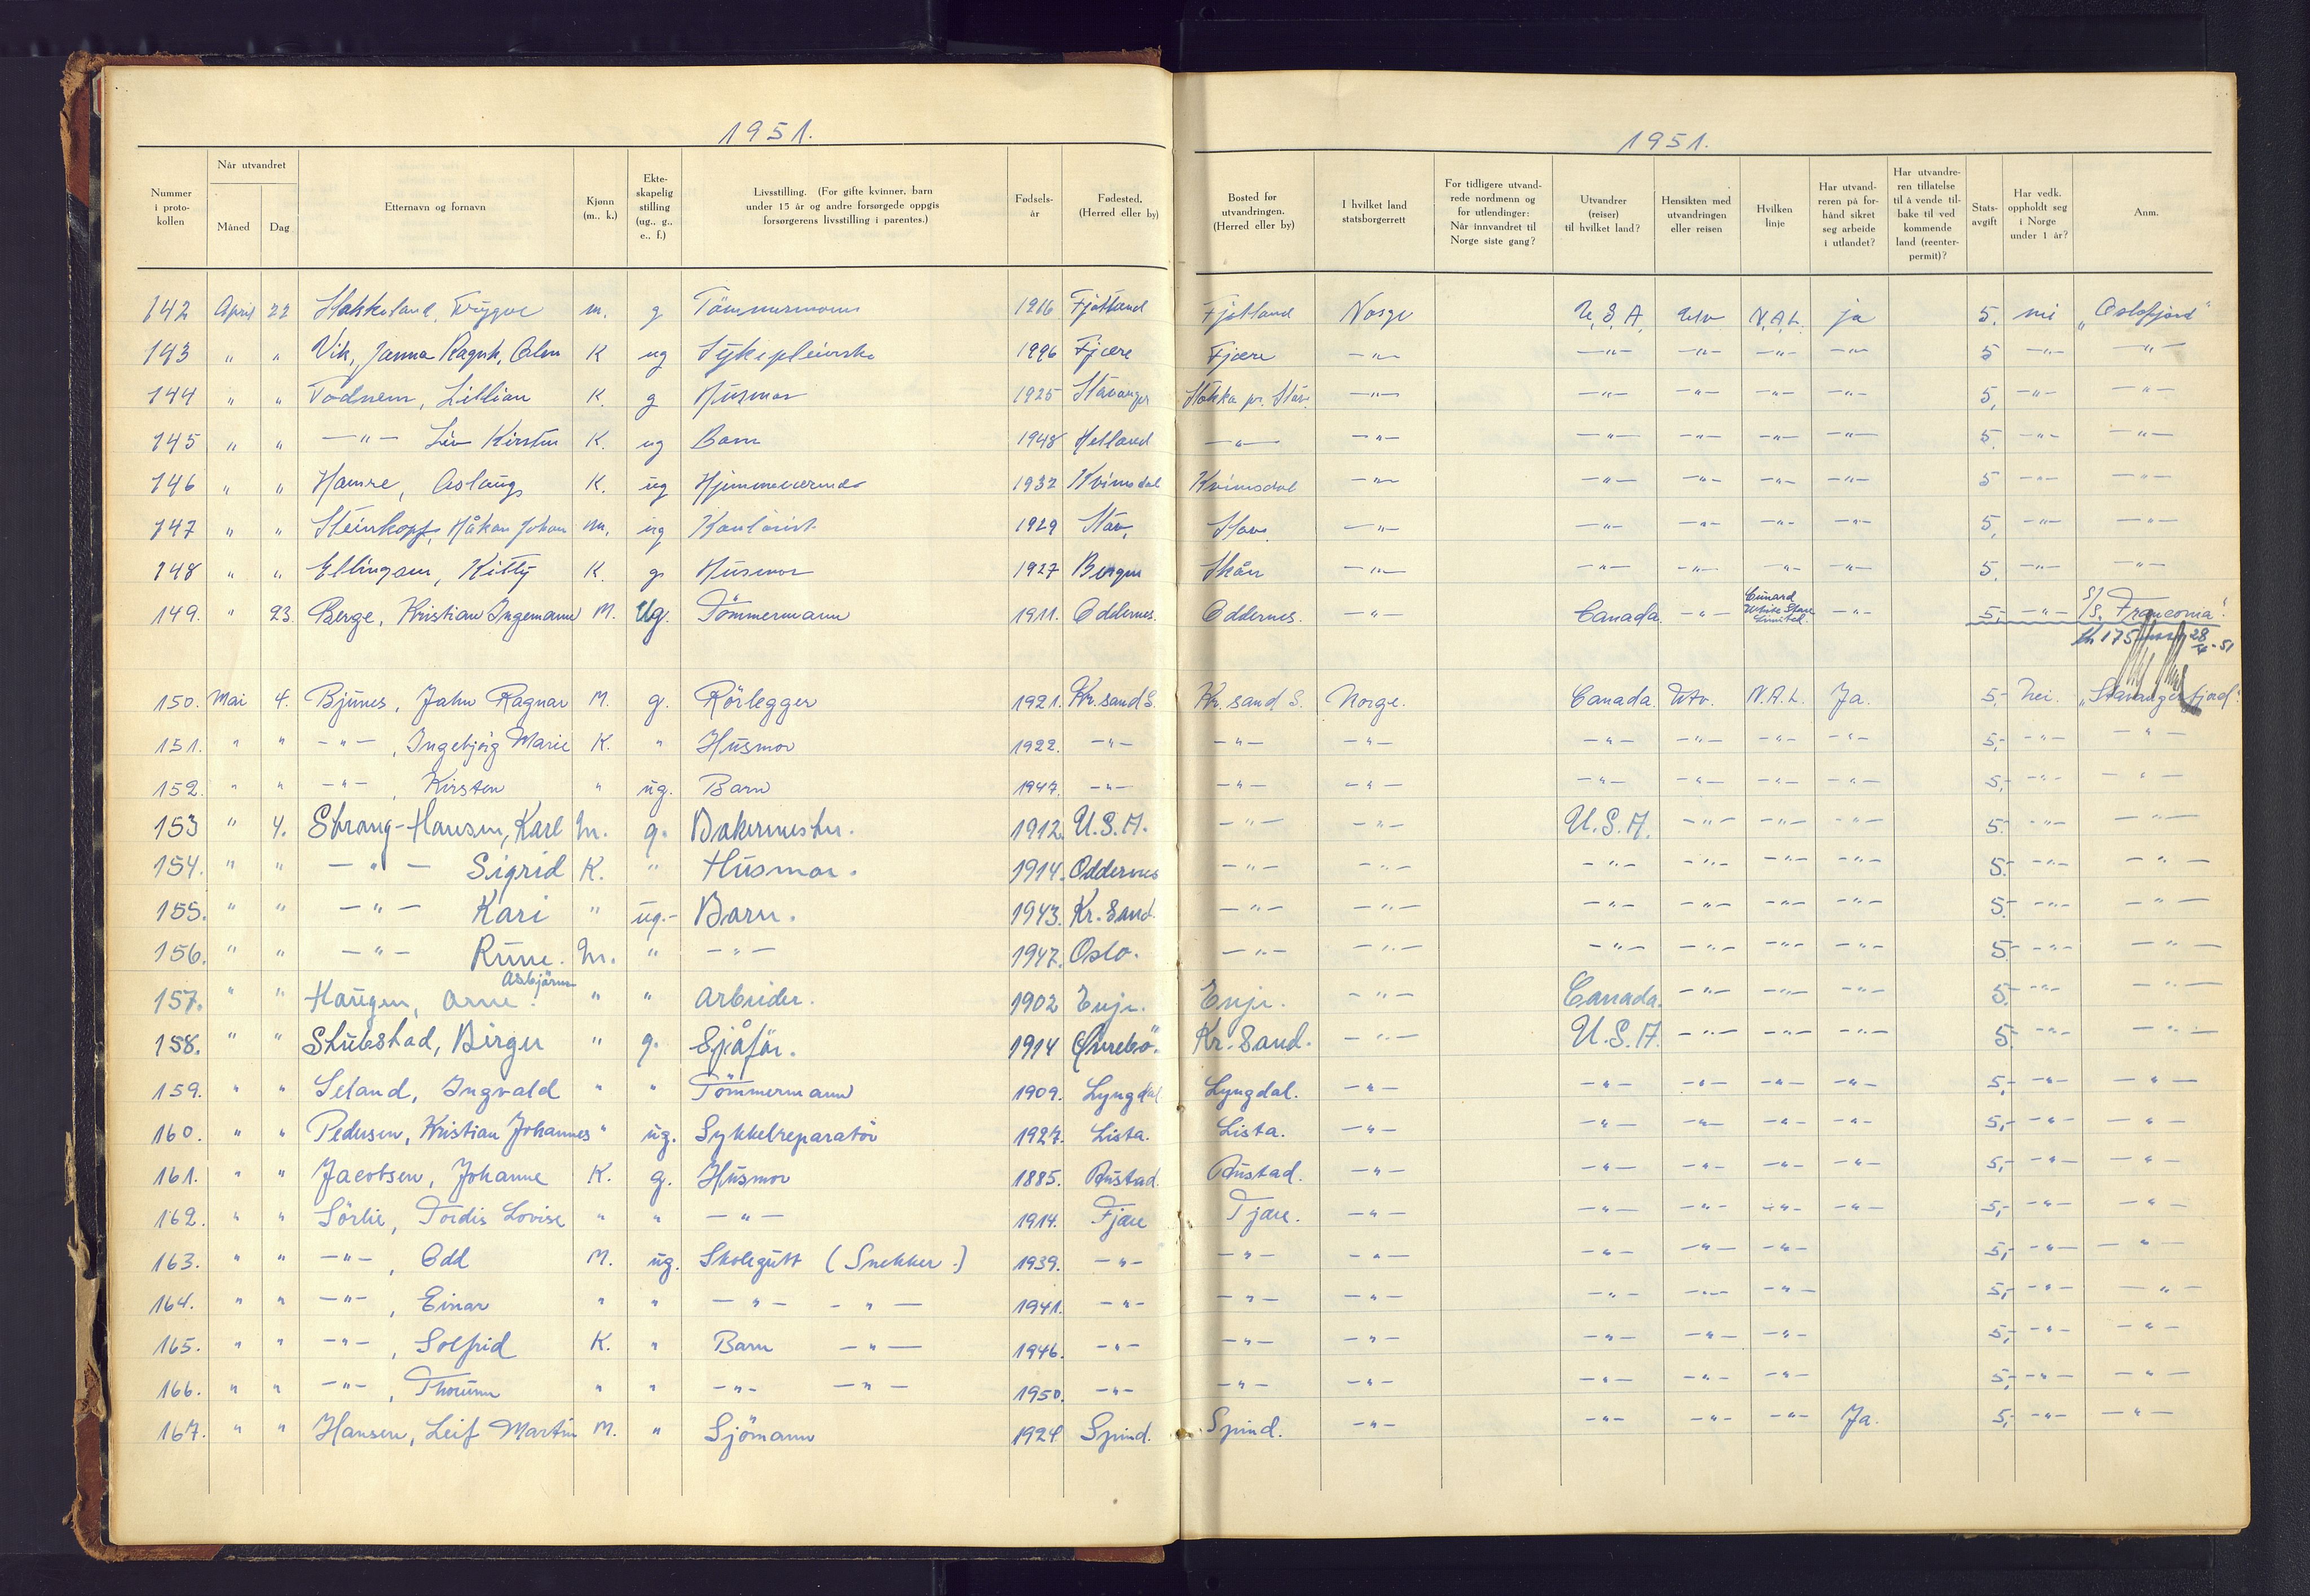 1951.
1951.
Nummer i proto-kollen | Når utvandret Måned Dag | Etternavn og fornavn | Kjønn (m., k.) | Ekte-skapelig stilling (ug., g., e., f.) | Livsstilling. (For gifte kvinner, barn under 15 år og andre forsørgede oppgis forsørgerens livsstilling i parentes.) | Fødsels-år | Fødested. (Herred eller by) | Bosted før utvandringen. (Herred eller by) | I hvilket land statsborgerrett | For tidligere utvand-rede nordmenn og for utlendinger: Når innvandret til Norge siste gang? | Utvandrer (reiser) til hvilket land? | Hensikten med utvandringen eller reisen | Hvilken linje | Har utvand-reren på for-hånd sikret seg arbeide i utlandet? | Har utvandre-ren tillatelse til å vende til-bake til ved kommende land (reenter-permit)? | Stats-avgift | Har vedk. oppholdt seg i Norge under 1 år? | Anm.
142 April 22 Trygve m. g Tömmermann 1916 Fjotland Fjotland Norge U.S.A. Utv N.A.L. ja 5. nei "Oslofjord"
143 " " Vik, Janna K ug Sykepleierske Fjære Fjære —"— —"— —"— —"— —"— 5 —"— —"—
144 " " Todnem, Lillian K. g Husmor 1925 Stavanger Stokka pr. Stav. —"— —"— —"— —"— —"— 5, —"— —"—
145 " " —"— Liv Kirsten K. ug Barn 1948 Hetland —"— —"— —"— —"— —"— —"— 5. —"— —"—
146 " " Hamre, Aslaug K. ug Hjemmeværende 1932 Kvinesdal Kvinesdal —"— —"— —"— —"— —"— 5 —"— —"—
147 " " Steinkopf, Håkon Johan m. ug Kontorist 1929 Stav. Stav. —"— —"— —"— —"— —"— 5, —"— —"—
148 " " Ellingsen, Kitty K. g Husmor 1927 Bergen Skåre —"— —"— —"— —"— —"— 5. —"— —"—
149. " 23. Berge, Kristian Ingemann M. Ug. Tömmermann 1911. Oddernes. Oddernes. —"— Canada. —"— Cunard White Star Limited. —"— 5,- —"— S/S. "Franconia".
kr 175 28/4-51
150. Mai 4. Bjunes, Jahn Ragnar M. g. Rörlegger 1921. Kr.sand S. Kr.sand S. Norge. Canada. Utv. N.A.L. Ja. 5,- Nei. "Stavangerfjord".
151. " " —"—, Ingebjörg Marie K. " Husmor 1922. —"— —"— —"— —"— —"— —"— —"— 5,- —"— —"—
152. " " —"—, Kirsten " ug. Barn 1947. —"— —"— —"— —"— —"— —"— —"— 5,- —"— —"—
153 " 4. Strang-Hansen, Karl M. g. Bakermester. 1912. U.S.A. —"— —"— U.S.A. —"— —"— —"— 5.- —"— —"—
154. " " —"— Sigrid K. " Husmor. 1914. Oddernes —"— —"— —"— —"— —"— —"— 5.- —"— —"—
155. " " —"— Kari " ug.- Barn. 1943. Kr.Sand. —"— —"— —"— —"— —"— —"— 5.- —"— —"—
156. " " —"— Rune. M. " —"— 1947. Oslo. —"— —"— —"— —"— —"— —"— 5.- —"— —"—
157. " " Haugen, Arne Asbjörn. " " Arbeider. 1902 Evje. Evje. —"— Canada. —"— —"— —"— 5.- —"— —"—
158. " " Stubstad, Birger " g. Sjåför. 1914 Øvrebö. Kr.Sand. —"— U.S.A. —"— —"— —"— 5.- —"— —"—
159. " " Seland, Ingvald " " Tömmermann 1909. Lyngdal Lyngdal. —"— —"— —"— —"— —"— 5,- —"— —"—
160. " " Pedersen, Kristian Johannes " ug. Sykkelreparatör 1927. Lista. Lista. —"— —"— —"— —"— —"— 5,- —"— —"—
161. " " Jacobsen, Johanne K. g. Husmor 1885. Austad. Austad. —"— —"— —"— —"— —"— 5,- —"— —"—
162. " " Sörlie, Tordis Lovise " " —"— 1914. Fjære Fjære. —"— —"— —"— —"— —"— 5,- —"— —"—
163. " " —"—, Odd M. ug. Skolegutt (Snekker.) 1939. —"— —"— —"— —"— —"— —"— 5,- —"— —"—
164. " " —"—, Einar " " —"— —"— 1941. —"— —"— —"— —"— —"— —"— 5,- —"— —"—
165. " " —"—, Solfrid K. " Barn —"— 1946. —"— —"— —"— —"— —"— —"— 5,- —"— —"—
166. " " —"—, Thorunn " " —"— —"— 1950. —"— —"— —"— —"— —"— —"— 5,- —"— —"—
167. " " Hansen, Leif Martin M. " Sjömann 1924. Spind. Spind. —"— —"— —"— —"— Ja. 5,- —"— —"—